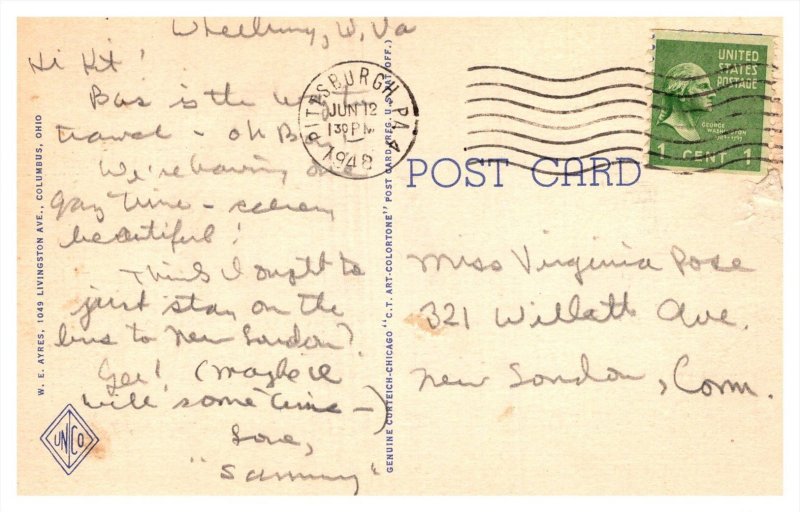 Wheeling, W. Va
Hi Kit!
Bus is the way to
travel - oh Boy!
We're having one
gay time - scenery
beautiful!
Think I ought to
just stay on the
bus to New London?
Gee! (Maybe I
will sometime -)
Love,
"Sammy"
W. E. AYRES, 1049 LIVINGSTON AVE., COLUMBUS, OHIO
UNCO
GENUINE CURTEICH-CHICAGO "C.T. ART-COLORTONE" POST CARD (REG. U.S. PAT. OFF.)
PITTSBURGH PA 4
JUN 12
130 PM
1948
UNITED
STATES
POSTAGE
GEORGE
WASHINGTON
1 CENT 1
POST CARD
Miss Virginia Pose
321 Willetts Ave.
New London, Conn.